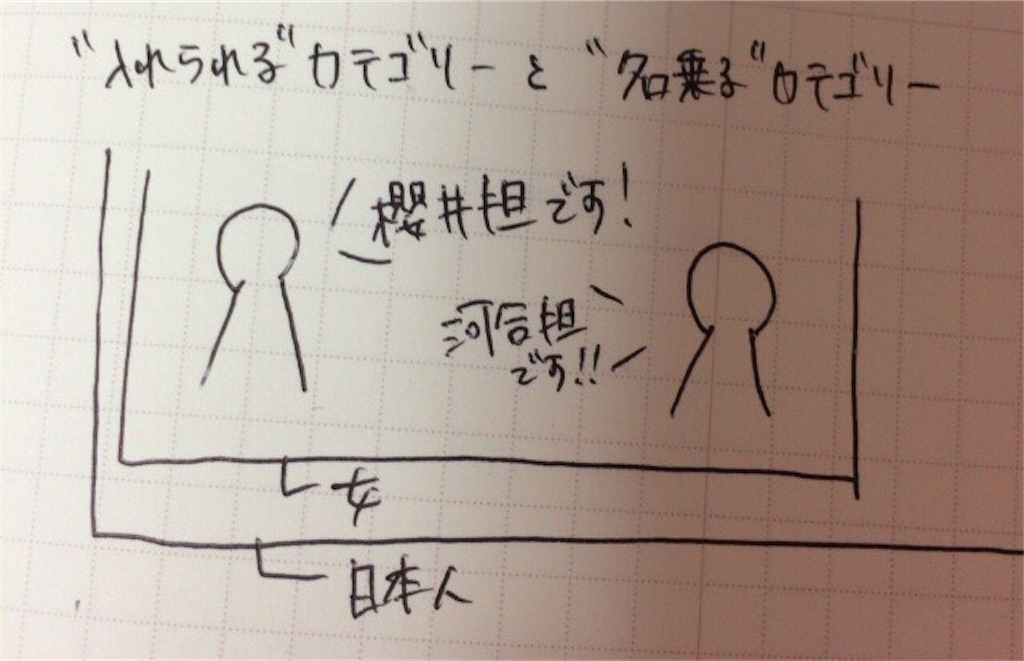 "入れられる"カテゴリーと"名乗る"カテゴリー
櫻井担です！
河合担
です!!
女
日本人